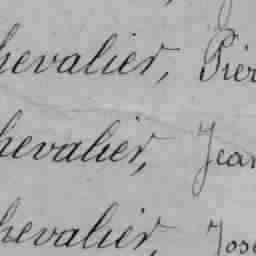 hevalier, Pier
hevalier, Jean
hevalier, Jose